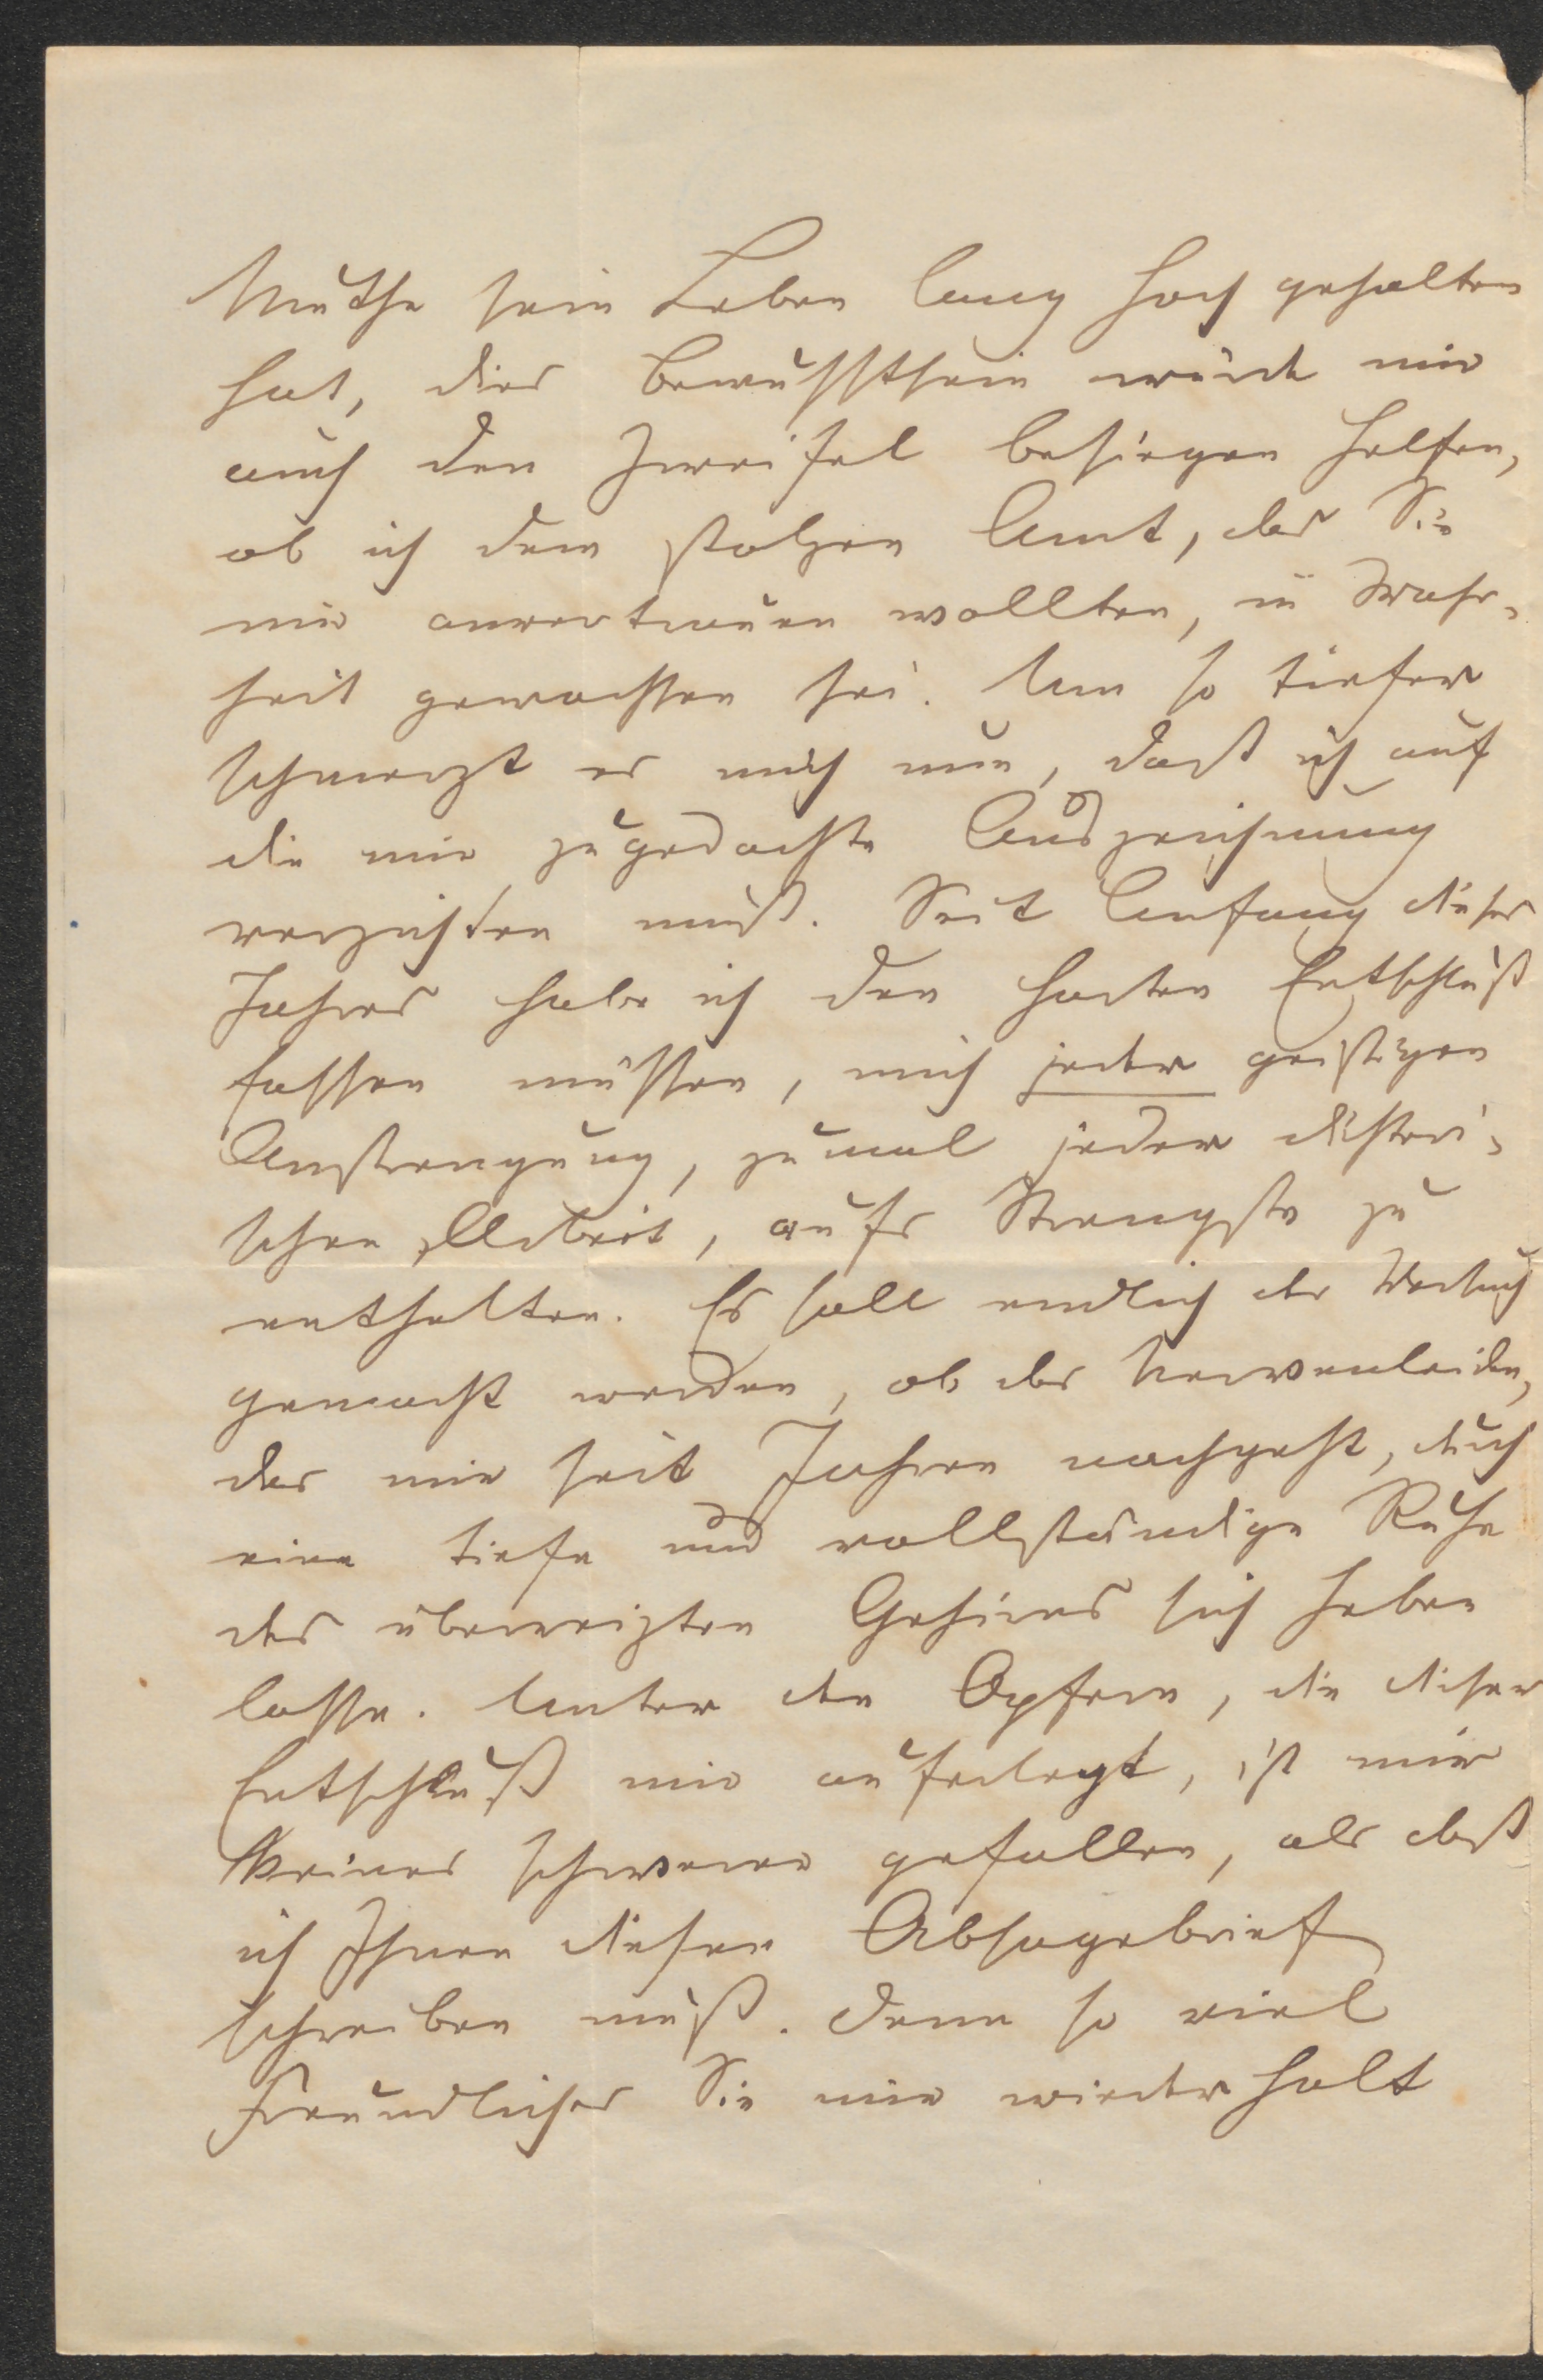 Muthe sein Leben lang hoch gehalten
hat, dies Bewußtsein würde mir
auch den Zweifel besiegen helfen,
ob ich dem stolzen Amt, das Sie
mir anvertrauen wollten, in Wahr-
heit gewachsen sei. Um so tiefer
schmerzt es mich nun, daß ich auf
die mir zugedachte Auszeichnung
verzichten muß. Seit Anfang dieses
Jahres habe ich den harten Entschluß
fassen müssen, mich jeder geistigen
Anstrengung, zumal jeder dichteri-
schen Arbeit, aufs Strengste zu
enthalten. Es soll endlich der Versuch
gemacht werden, ob das Nervenleiden,
das mir seit Jahren nachgeht, durch
eine tiefe und vollständige Ruhe
des überreizten Gehirns sich heben
lasse. Unter den Opfern, die dieser
Entschluß mir auferlegt, ist mir
keines schwerer gefallen, als daß
ich Ihnen diesen Absagebrief
schreiben muß. Denn so viel
Freundliches Sie mir wiederholt